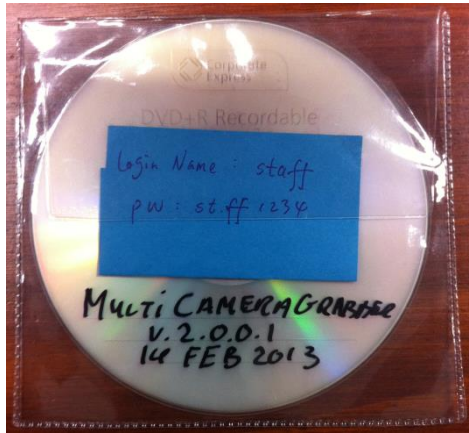 Corporate
Express
DVD+R Recordable
Login Name : staff
pw : st.ff 1234
MULTI CAMERAGRABBER
V. 2.0.0.1
14 FEB 2013